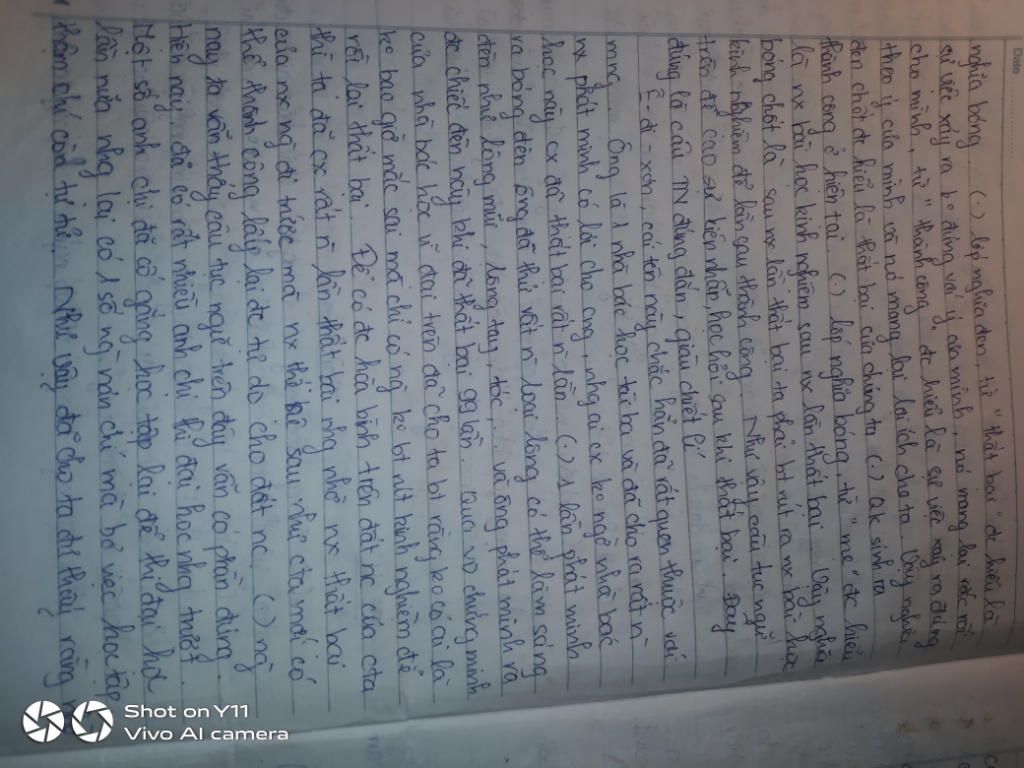 Date
nghĩa bóng. (.) lớp nghĩa đen, từ "thất bại" đc hiểu là
sự việc xảy ra ko đúng với ý của mình, nó mang lại rắc rối
cho mình, từ "thành công" đc hiểu là sự việc xảy ra đúng
theo ý của mình và nó mang lại lợi ích cho ta. Vậy nghĩa
đen chốt đc hiểu là thất bại của chúng ta (.) qk sinh ra
thành công ở hiện tại. (.) lớp nghĩa bóng, từ "mẹ" đc hiểu
là nx bài học kinh nghiệm sau nx lần thất bại. Vậy nghĩa
bóng chốt là sau nx lần thất bại ta phải bt rút ra nx bài học
kinh nghiệm để lần sau thành công. Như vậy câu tục ngữ
trên đề cao sự kiên nhẫn, học hỏi sau khi thất bại. Đây
đúng là câu TN đúng đắn, giàu triết lí
Ê-đi-xơn, cái tên này chắc hẳn đã rất quen thuộc với
mng. Ông là 1 nhà bác học tử ba và đã cho ra rất n
nx phát minh có lợi cho cng, nhg ai cx ko ngờ nhà bác
học này cx đã thất bại rất n lần. (.) 1 lần phát minh
ra bóng đèn ông đã thử rất n loại lông có thể làm sáng
đèn như lông mũi, lông tay, tóc, và ông phát minh ra
đc chiếc đèn này khi đã thất bại 99 lần. Qua vc chứng minh
của nhà bác học vĩ đại trên đã cho ta bt rằng ko có ai là
ko bao giờ mắc sai mà chỉ có ng ko bt rút kinh nghiệm để
rồi lại thất bại. Để có đc hòa bình trên đất nc của cta
thì ta đã cx rất n lần thất bại nhg nhờ nx thất bại
của nx ng đi trước mà nx thế hệ sau như cta mới có
thể thành công lấy lại đc tự do cho đất nc. (.) ng
nay ta vẫn thấy câu tục ngữ trên đây vẫn có phần đúng.
Hiện nay đã có rất nhiều anh chị thi đại học nhg trượt.
Một số anh chị đã cố gắng học tập lại để thi đại học
lần nữa nhg lại có 1 số ng nản chí mà bỏ việc học tập
thậm chí còn tự tử. Như vậy đã cho ta để thấy rằng